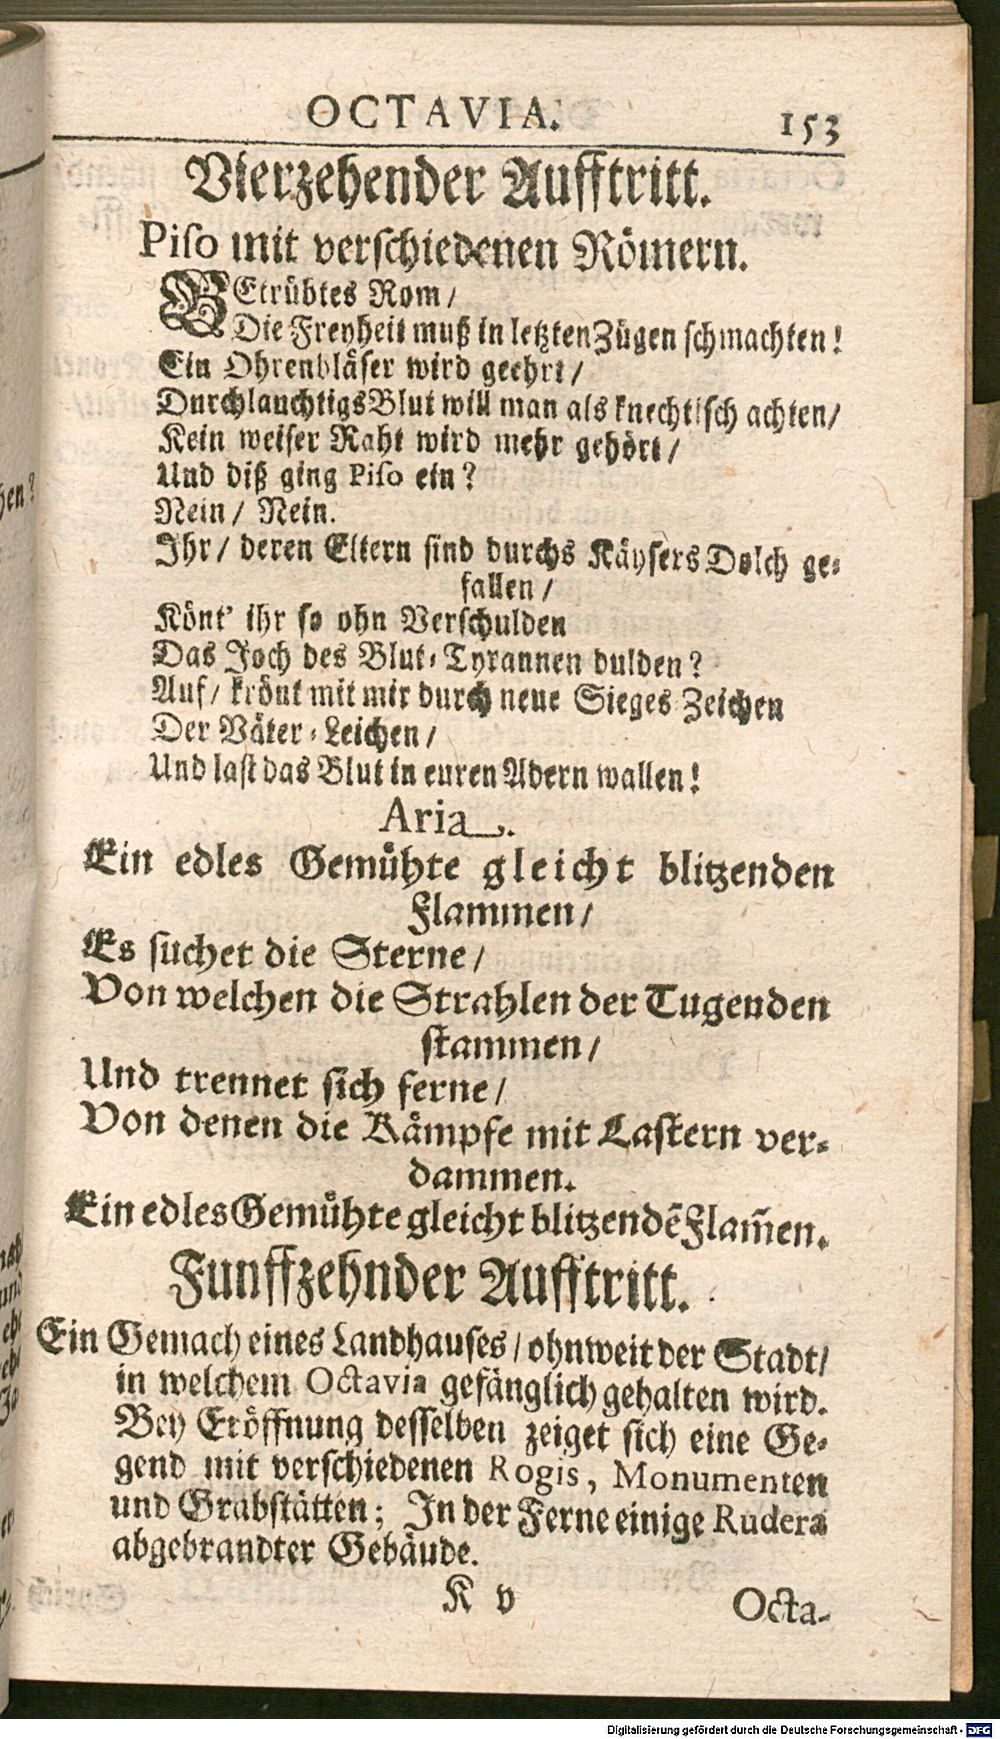 OCTAVIA. 153
Vierzehender Aufftritt.
Piso mit verschiedenen Römern.
BEtrübtes Rom /
Die Freyheit muß in letzten Zügen schmachten!
Ein Ohrenbläser wird geehrt /
Durchlauchtigs Blut will man als knechtisch achten /
Kein weiser Raht wird mehr gehört /
Und diß ging Piso ein?
Nein / Nein.
Ihr / deren Eltern sind durchs Käysers Dolch ge-
fallen /
Könt' ihr so ohn Verschulden
Das Joch des Blut-Tyrannen dulden?
Auf / krönt mit mir durch neue Sieges Zeichen
Der Väter-Leichen /
Und last das Blut in euren Adern wallen!
Aria.
Ein edles Gemühte gleicht blitzenden
Flammen /
Es suchet die Sterne /
Von welchen die Strahlen der Tugenden
stammen /
Und trennet sich ferne /
Von denen die Kämpfe mit Lastern ver-
dammen.
Ein edles Gemühte gleicht blitzendẽ Flam̃en.
Funffzehnder Aufftritt.
Ein Gemach eines Landhauses / ohnweit der Stadt /
in welchem Octavia gefänglich gehalten wird.
Bey Eröffnung desselben zeiget sich eine Ge-
gend mit verschiedenen Rogis, Monumenten
und Grabstätten; In der Ferne einige Rudera
abgebrandter Gebäude.
K v Octa-
Digitalisierung gefördert durch die Deutsche Forschungsgemeinschaft - DFG